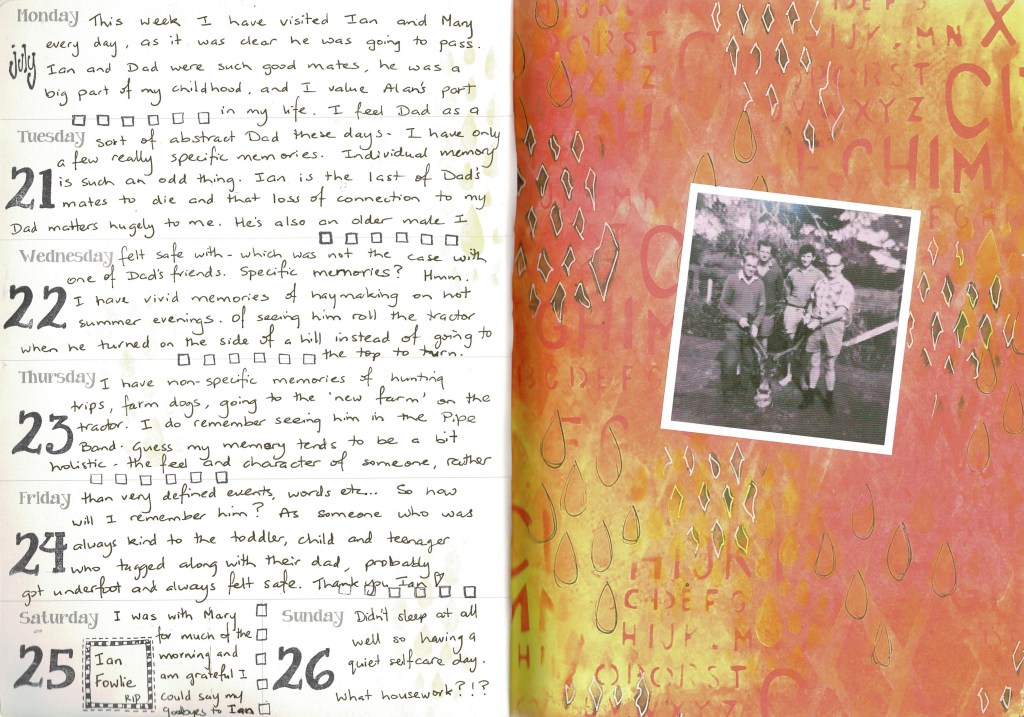 Monday This week I have visited Ian and Mary
every day, as it was clear he was going to pass.
july
Ian and Dad were such good mates, he was a
big part of my childhood, and I value Alan's part
in my life. I feel Dad as a
Tuesday sort of abstract Dad these days. I have only
a few really specific memories. Individual memory
21
is such an odd thing. Ian is the last of Dad's
mates to die and that loss of connection to my
Dad matters hugely to me. He's also an older male I
Wednesday felt safe with - which was not the case with
one of Dad's friends. Specific memories? Hmm..
22
I have vivid memories of haymaking on hot
summer evenings. Of seeing him roll the tractor
when he turned on the side of a hill instead of going to
the top to turn.
Thursday I have non-specific memories of hunting
trips, farm dogs, going to the 'new farm' on the
23
tractor. I do remember seeing him in the Pipe
Band. Guess my memory tends to be a bit
holistic - the feel and character of someone, rather
Friday than very defined events, words etc... So how
will I remember him? As someone who was
24
always kind to the toddler, child and teenager
who tagged along with their dad, probably
got underfoot and always felt safe. Thank you Ian
Saturday I was with Mary
25
for much of the
morning and
am grateful I
could say my
goodbyes to Ian
Ian
Fowlie
RIP
Sunday Didn't sleep at all
26
well so having a
quiet selfcare day.
What housework?!?
HIJK
X
HIJK MN
PQRST
PQRST
C
CI
VWXYZ
CHIMN
GHIM
HIJK
CDEFG
HIJK M
OPQRST
C